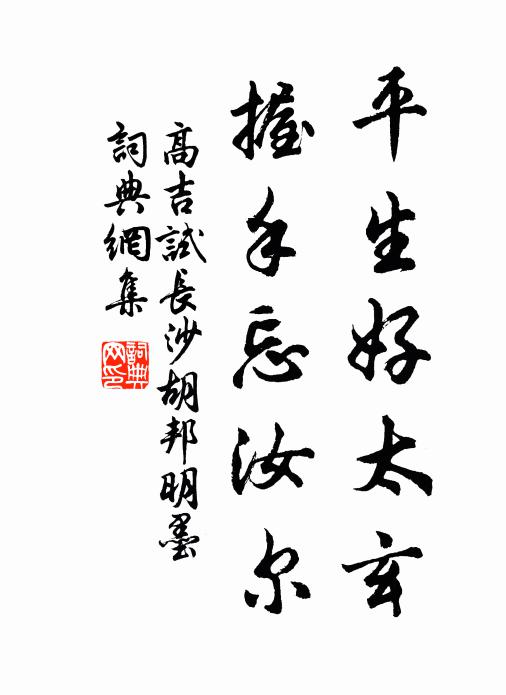 平生好太玄
握手忘汝尔
高吉試長沙胡邦明墨
詞典網集
詞典网印